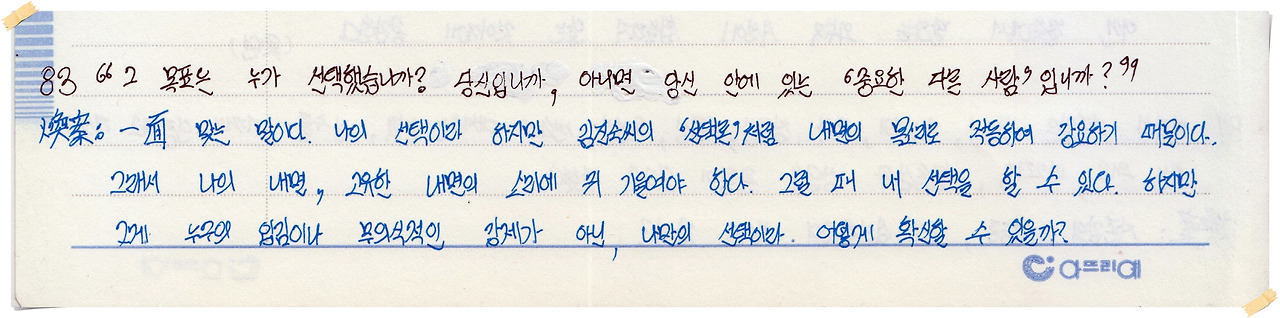 83 “그 목표은 누가 선택했습니까? 당신입니까, 아니면 당신 안에 있는 ‘중요한 다른 사람’ 입니까?”
煥棄: 一面 맞는 말이다. 나의 선택이라 하지만 김진송씨의 ‘선택론’처럼 내면의 목소리로 작동하여 강요하기 때문이다.
그래서 나의 내면, 고유한 내면의 소리에 귀 기울여야 한다. 그럴 때 내 선택을 할 수 있다. 하지만
그게 누구의 입김이나 무의식적인 강제가 아닌, 나만의 선택이라. 어떻게 확신할 수 있을까?
아뜨리에